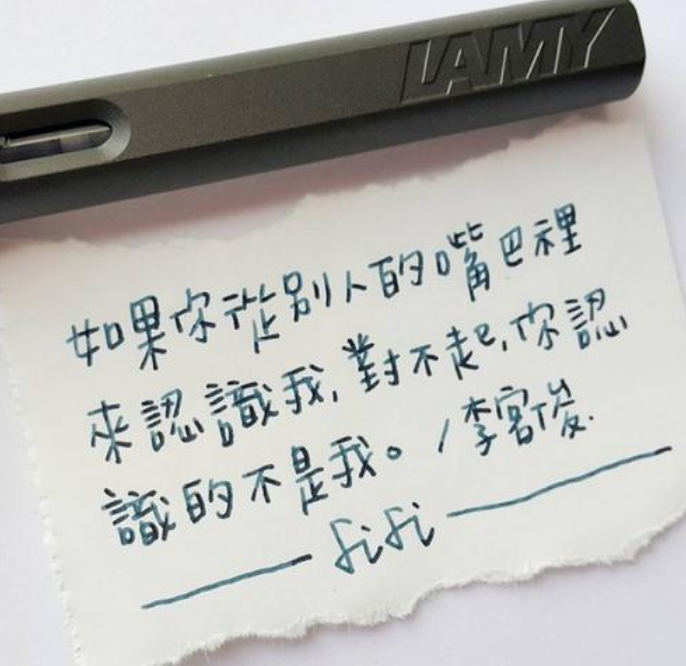 LAMY
如果你從別人的嘴巴裡
來認識我,對不起,你認
識的不是我。/李客俊.
fifi